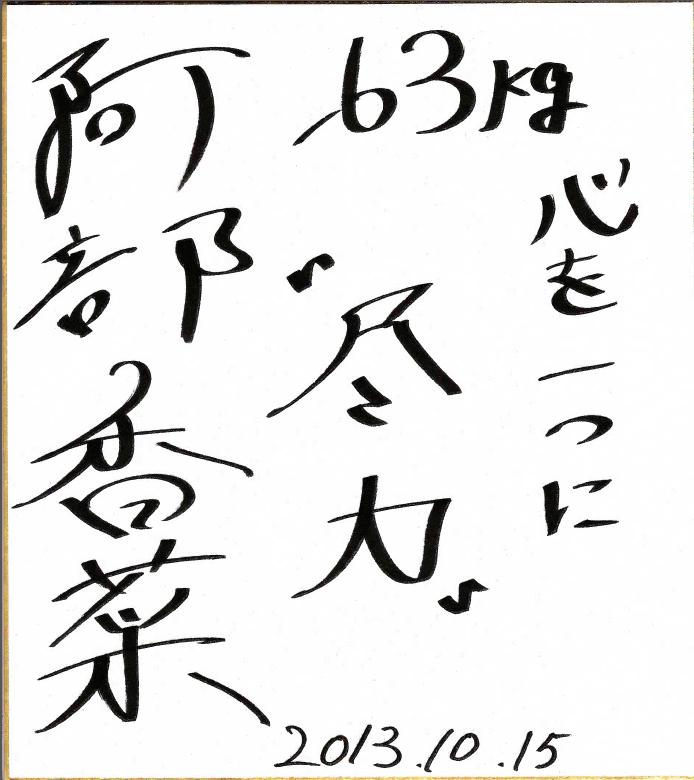 63kg
心を一つに
"尽力"
阿部香菜
2013.10.15